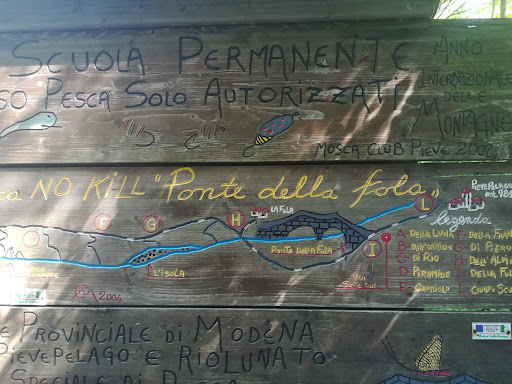 SCUOLA PERMANENTE
SO PESCA SOLO AUTORIZZATI
ANNO
INTERNAZIONALE
DELLE
MONTAGNE
MOSCA CLUB PIEVE 2002
NO KILL "Ponte della fola"
PIEVEPELAGO
mt. 781
LA FOLA
F
G
H
L
I
PONTE DELLA FOLA
L'ISOLA
QUI
SIETE QUI
legenda
A DELLA LUNA
B DELL'ORRIDO
C DI RIO
D PIRAMIDE
E CAPRIOLO
F DELLA
G DI PIERO
H
I DELLA FOLA
L CAMPO SCUOLA
2004
E PROVINCIALE DI MODENA
PIEVEPELAGO E RIOLUNATO
SPECIALE DI PESCA